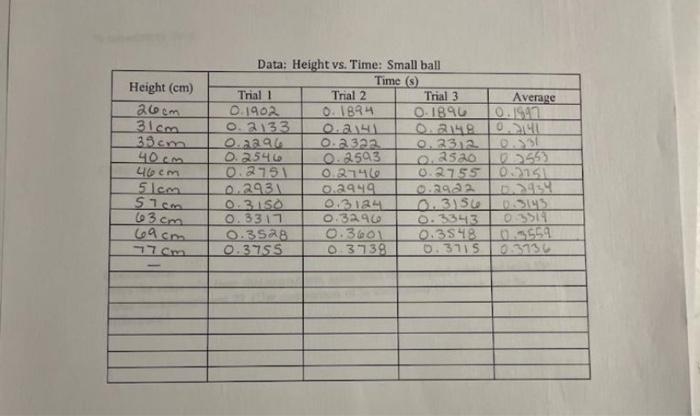 Data: Height vs. Time: Small ball
Height (cm) Time (s)
Trial 1 Trial 2 Trial 3 Average
26cm 0.1902 0.1894 0.1896 0.1897
31cm 0.2133 0.2141 0.2148 0.2141
35cm 0.2296 0.2322 0.2312 0.231
40cm 0.2546 0.2593 0.2520 0.2553
46cm 0.2751 0.2746 0.2755 0.2751
51cm 0.2931 0.2949 0.2922 0.2934
57cm 0.3150 0.3124 0.3156 0.3143
63cm 0.3317 0.3296 0.3343 0.3319
69cm 0.3528 0.3601 0.3548 0.3559
77cm 0.3755 0.3738 0.3715 0.3736
—